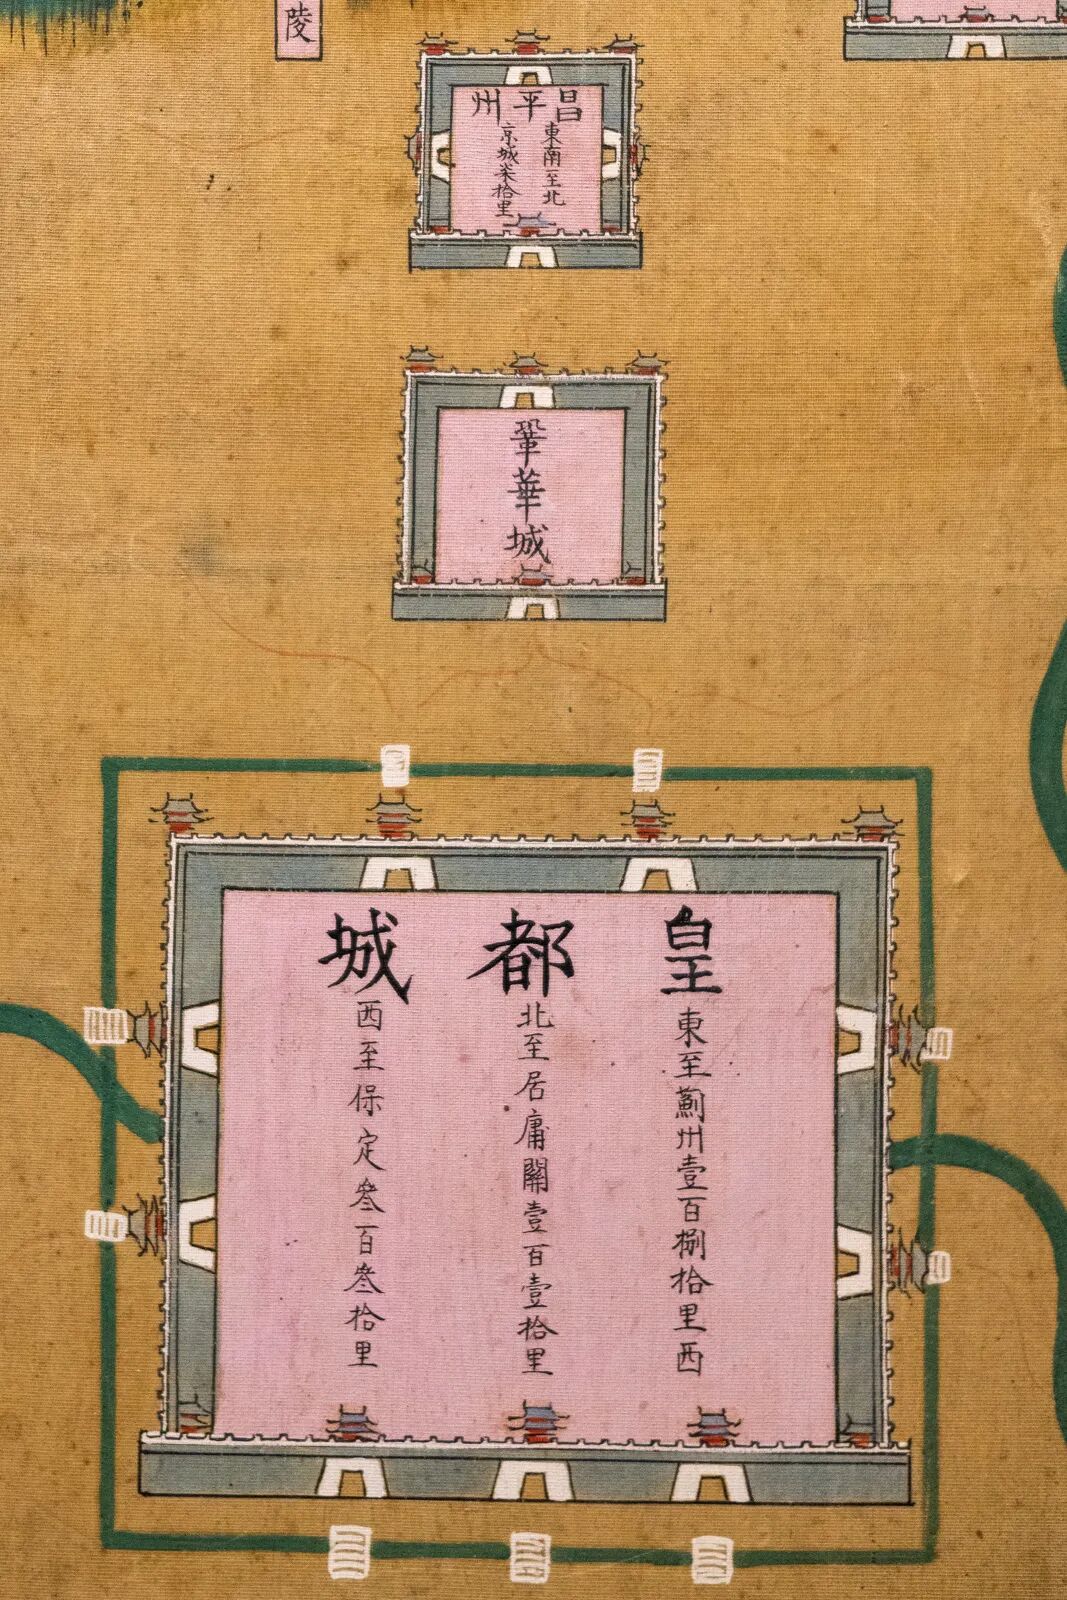 陵
昌平州
東南至北
京城柒拾里
鞏華城
皇都城
東至薊州壹百捌拾里西
北至居庸關壹百壹拾里
西至保定叁百叁拾里